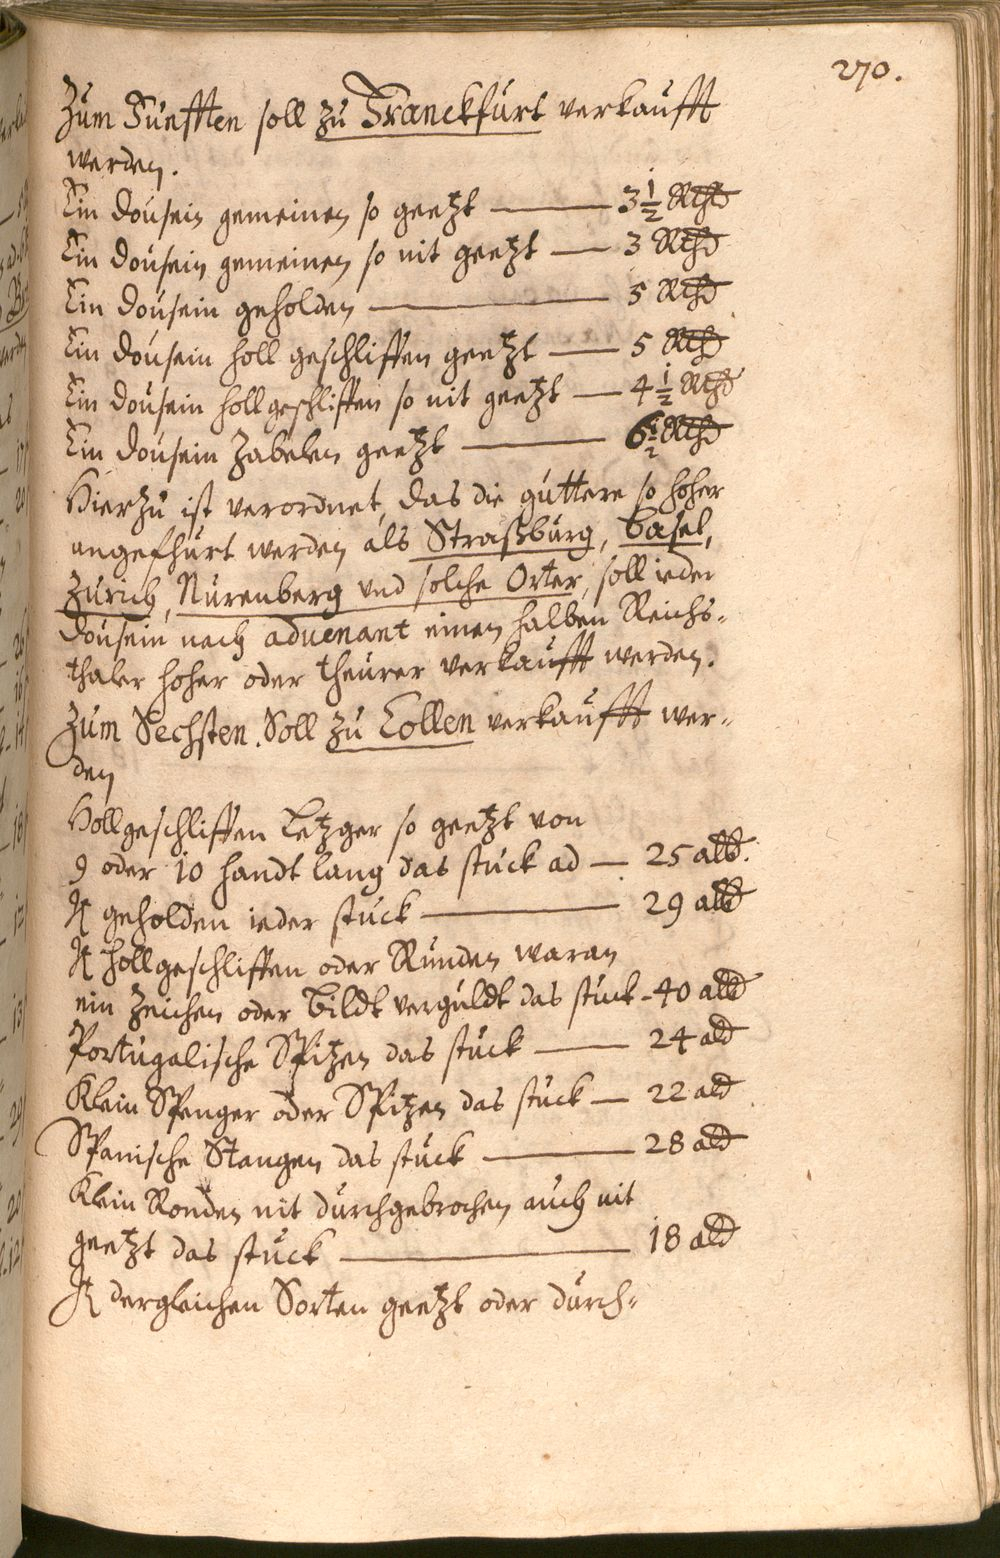 270.
Zum Fünfften soll zu Franckfurt verkaufft
werden.
Ein dousein gemeinen so geetzt — 3 1/2 Rthlr
Ein dousein gemeinen so nit geetzt — 3 Rthlr
Ein dousein geholden — 5 Rthlr
Ein dousein holl geschliffen geetzt — 5 Rthlr
Ein dousein hollgeschliffen so nit geetzt — 4 1/2 Rthlr
Ein dousein Zabelen geetzt — 6 1/2 Rthlr
Hierzu ist verordnet, das die güttere so hoher
angefhürt werden als Straßburg, Basel,
Zürich, Nürenberg vnd solche Orter, soll ieder
dousein nach aduenant einen halben Reichs-
thaler hoher oder theurer verkaufft werden.
Zum Sechsten. Soll zu Collen verkaufft wer-
den
Hollgeschliffen so geetzt von
9 oder 10 handt lang das stück ad — 25 alb.
geholden ieder stück — 29 alb
hollgeschliffen oder Runden waran
ein Zeichen oder Bildt verguldt das stück - 40 alb
Portugalische Spitzen das stück — 24 alb
Klein Spenger oder Spitzen das stück — 22 alb
Spanische Stangen das stück — 28 alb
Klein Ronden nit durchgebrochen auch nit
geetzt das stück — 18 alb
dergleichen Sorten geetzt oder durch-